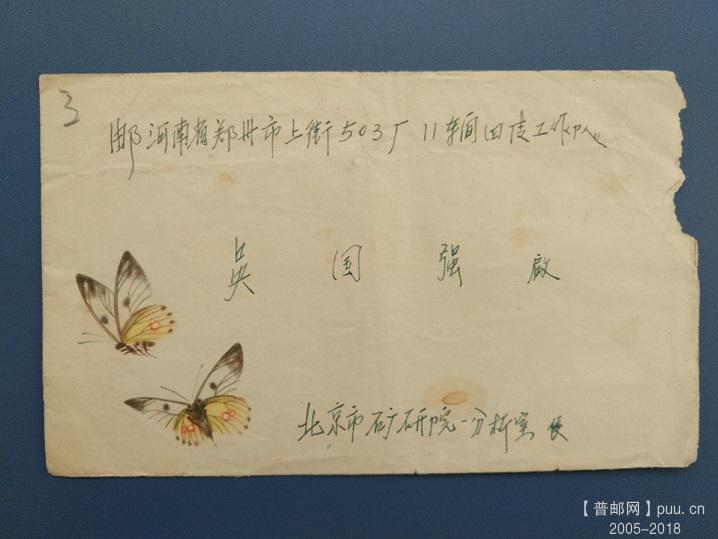 3
邮河南省郑州市上街503厂11车间四袁工作卩人
吴国强启
北京市矿研院一分析室
【普邮网】puu.cn
2005-2018